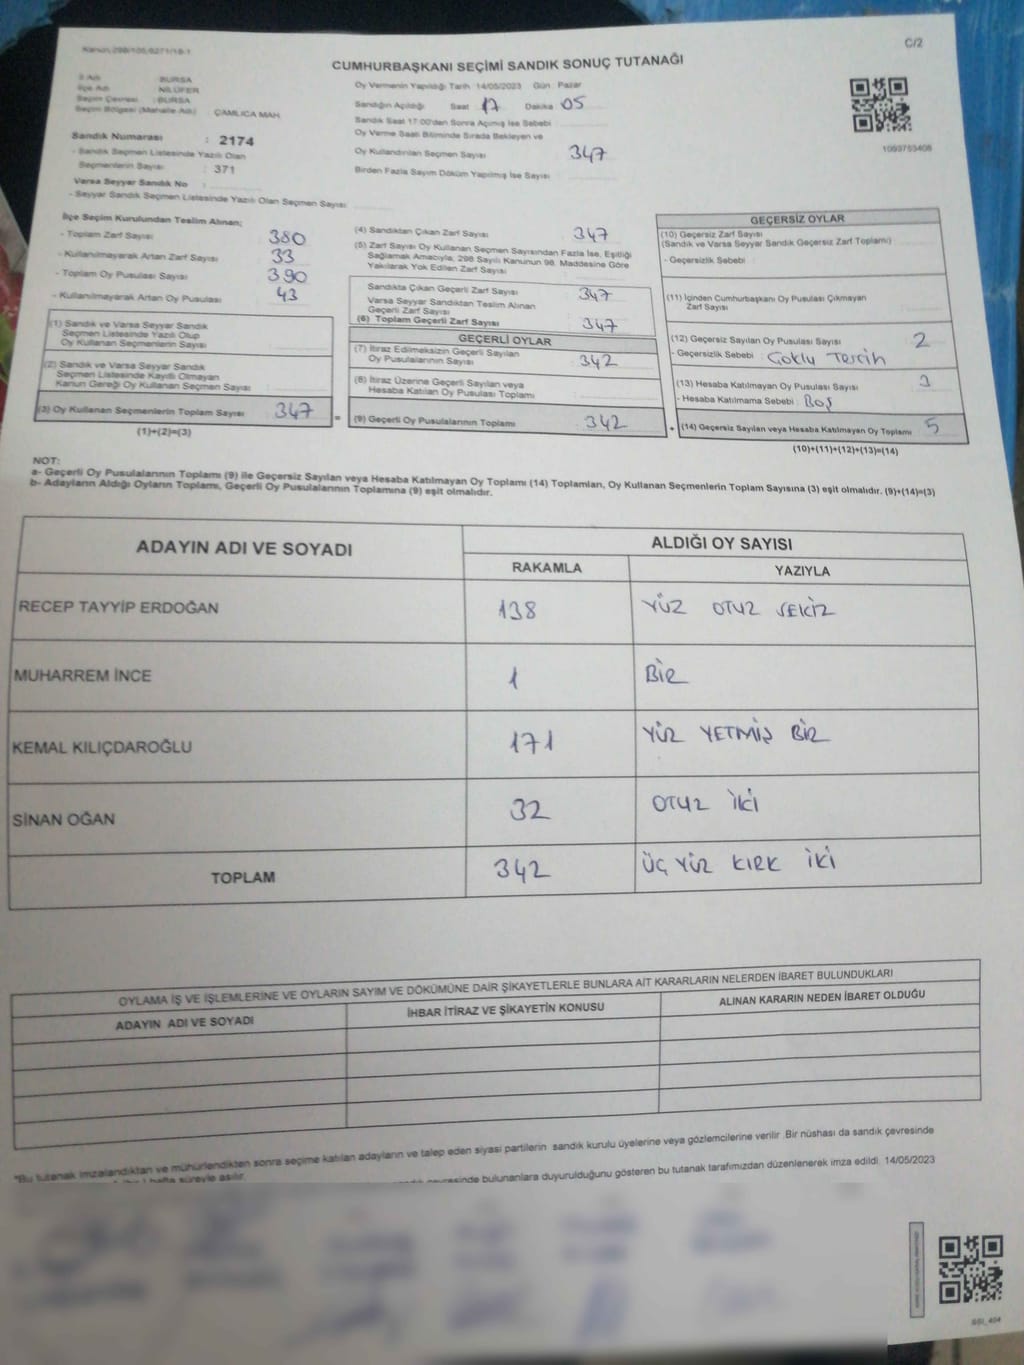 Kanun;298/105,6271/18-1
C/2
CUMHURBAŞKANI SEÇİMİ SANDIK SONUÇ TUTANAĞI
İl Adı : BURSA
İlçe Adı : NİLÜFER
Seçim Çevresi : BURSA
Seçim Bölgesi (Mahalle Adı) : ÇAMLICA MAH.
Sandık Numarası : 2174
- Sandık Seçmen Listesinde Yazılı Olan
Seçmenlerin Sayısı : 371
Varsa Seyyar Sandık No :
- Seyyar Sandık Seçmen Listesinde Yazılı Olan Seçmen Sayısı:
Oy Vermenin Yapıldığı Tarih 14/05/2023 Gün: Pazar
Sandığın Açıldığı Saat 17 Dakika 05
Sandık Saat 17:00'dan Sonra Açılmış İse Sebebi :
Oy Verme Saati Bitiminde Sırada Bekleyen ve
Oy Kullandırılan Seçmen Sayısı 347
Birden Fazla Sayım Döküm Yapılmış İse Sayısı
1093753408
İlçe Seçim Kurulundan Teslim Alınan;
- Toplam Zarf Sayısı : 380
- Kullanılmayarak Artan Zarf Sayısı : 33
- Toplam Oy Pusulası Sayısı : 390
- Kullanılmayarak Artan Oy Pusulası : 43
(1) Sandık ve Varsa Seyyar Sandık
Seçmen Listesinde Yazılı Olup
Oy Kullanan Seçmenlerin Sayısı :
(2) Sandık ve Varsa Seyyar Sandık
Seçmen Listesinde Kayıtlı Olmayan
Kanun Gereği Oy Kullanan Seçmen Sayısı :
(3) Oy Kullanan Seçmenlerin Toplam Sayısı : 347
(1)+(2)=(3)
=
(4) Sandıktan Çıkan Zarf Sayısı : 347
(5) Zarf Sayısı Oy Kullanan Seçmen Sayısından Fazla İse, Eşitliği
Sağlamak Amacıyla, 298 Sayılı Kanunun 98. Maddesine Göre
Yakılarak Yok Edilen Zarf Sayısı :
Sandıkta Çıkan Geçerli Zarf Sayısı : 347
Varsa Seyyar Sandıktan Teslim Alınan
Geçerli Zarf Sayısı :
(6) Toplam Geçerli Zarf Sayısı : 347
GEÇERLİ OYLAR
(7) İtiraz Edilmeksizin Geçerli Sayılan
Oy Pusulalarının Sayısı : 342
(8) İtiraz Üzerine Geçerli Sayılan veya
Hesaba Katılan Oy Pusulası Toplamı :
(9) Geçerli Oy Pusulalarının Toplamı : 342
+
GEÇERSİZ OYLAR
(10) Geçersiz Zarf Sayısı
(Sandık ve Varsa Seyyar Sandık Geçersiz Zarf Toplamı)
- Geçersizlik Sebebi :
(11) İçinden Cumhurbaşkanı Oy Pusulası Çıkmayan
Zarf Sayısı :
(12) Geçersiz Sayılan Oy Pusulası Sayısı : 2
- Geçersizlik Sebebi : Çoklu Tercih
(13) Hesaba Katılmayan Oy Pusulası Sayısı : 3
- Hesaba Katılmama Sebebi : Boş
(14) Geçersiz Sayılan veya Hesaba Katılmayan Oy Toplamı : 5
(10)+(11)+(12)+(13)=(14)
NOT:
a- Geçerli Oy Pusulalarının Toplamı (9) ile Geçersiz Sayılan veya Hesaba Katılmayan Oy Toplamı (14) Toplamları, Oy Kullanan Seçmenlerin Toplam Sayısına (3) eşit olmalıdır. (9)+(14)=(3)
b- Adayların Aldığı Oyların Toplamı, Geçerli Oy Pusulalarının Toplamına (9) eşit olmalıdır.
ADAYIN ADI VE SOYADI
ALDIĞI OY SAYISI
RAKAMLA YAZIYLA
RECEP TAYYİP ERDOĞAN 138 YÜZ OTUZ SEKİZ
MUHARREM İNCE 1 BİR
KEMAL KILIÇDAROĞLU 171 YÜZ YETMİŞ BİR
SİNAN OĞAN 32 OTUZ İKİ
TOPLAM 342 ÜÇ YÜZ KIRK İKİ
OYLAMA İŞ VE İŞLEMLERİNE VE OYLARIN SAYIM VE DÖKÜMÜNE DAİR ŞİKAYETLERLE BUNLARA AİT KARARLARIN NELERDEN İBARET BULUNDUKLARI
ADAYIN ADI VE SOYADI İHBAR İTİRAZ VE ŞİKAYETİN KONUSU ALINAN KARARIN NEDEN İBARET OLDUĞU
*Bu tutanak imzalandıktan ve mühürlendikten sonra seçime katılan adayların ve talep eden siyasi partilerin sandık kurulu üyelerine veya gözlemcilerine verilir. Bir nüshası da sandık çevresinde
hafta süreyle asılır.
çevresinde bulunanlara duyurulduğunu gösteren bu tutanak tarafımızdan düzenlenerek imza edildi. 14/05/2023
SSI_404